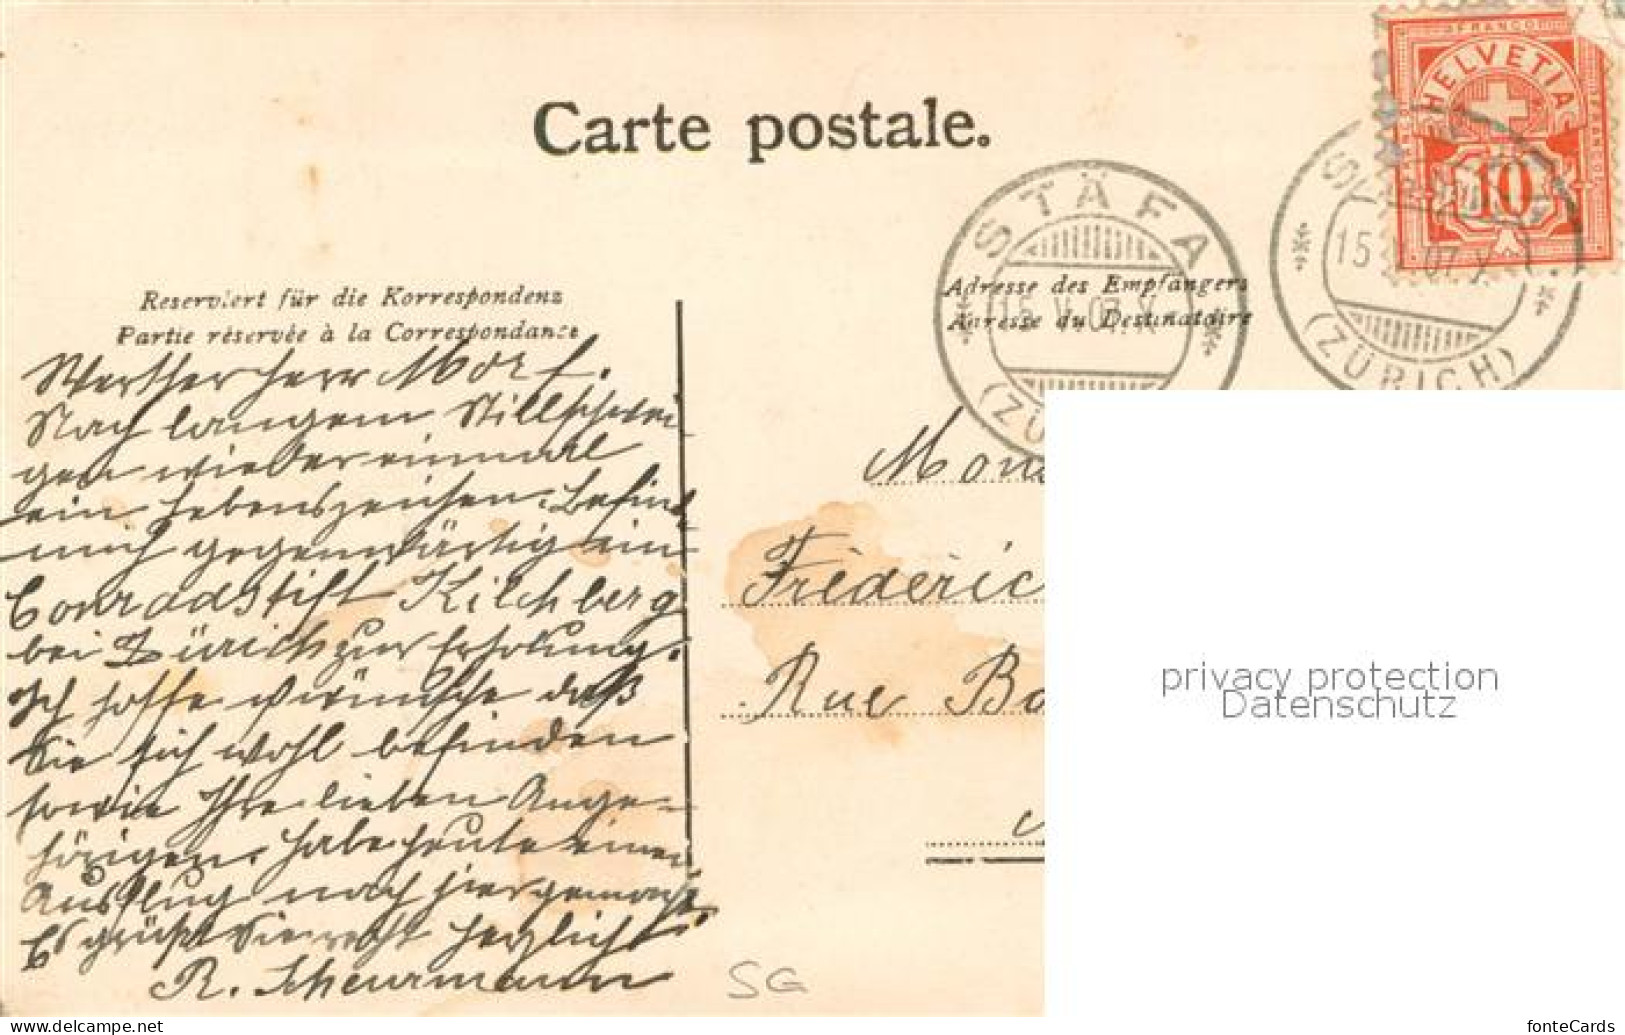 Carte postale.
FRANCO
HELVETIA
10
STÄFA
15.V.07.X
(ZÜ
15 07.X
(ZÜRICH)
Reserviert für die Korrespondenz
Partie réservée à la Correspondance
Adresse des Empfängers
Adresse du Destinataire
Werther Herr Morf.
Nach langem Stillschwei
gen wieder einmal
ein Lebenszeichen. Befin
mich gegenwärtig im
Conradstift Kilchberg
bei Zürich zur Erholung.
Ich hoffe & wünsche daß
Sie sich wohl befinden
sowie Ihre lieben Ange-
hörigen. Habe heute einen
Ausflug nach hier gemacht.
Es grüßt Sie recht herzlich
R. Scheurmann
Mons
Fréderic
Rue Ba
SG
privacy protection
Datenschutz
www.delcampe.net
fonteCards